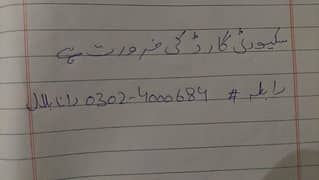 سکیورٹی گارڈ کی ضرورت ہے
رابطہ # 0302-4000684 رانا بلال